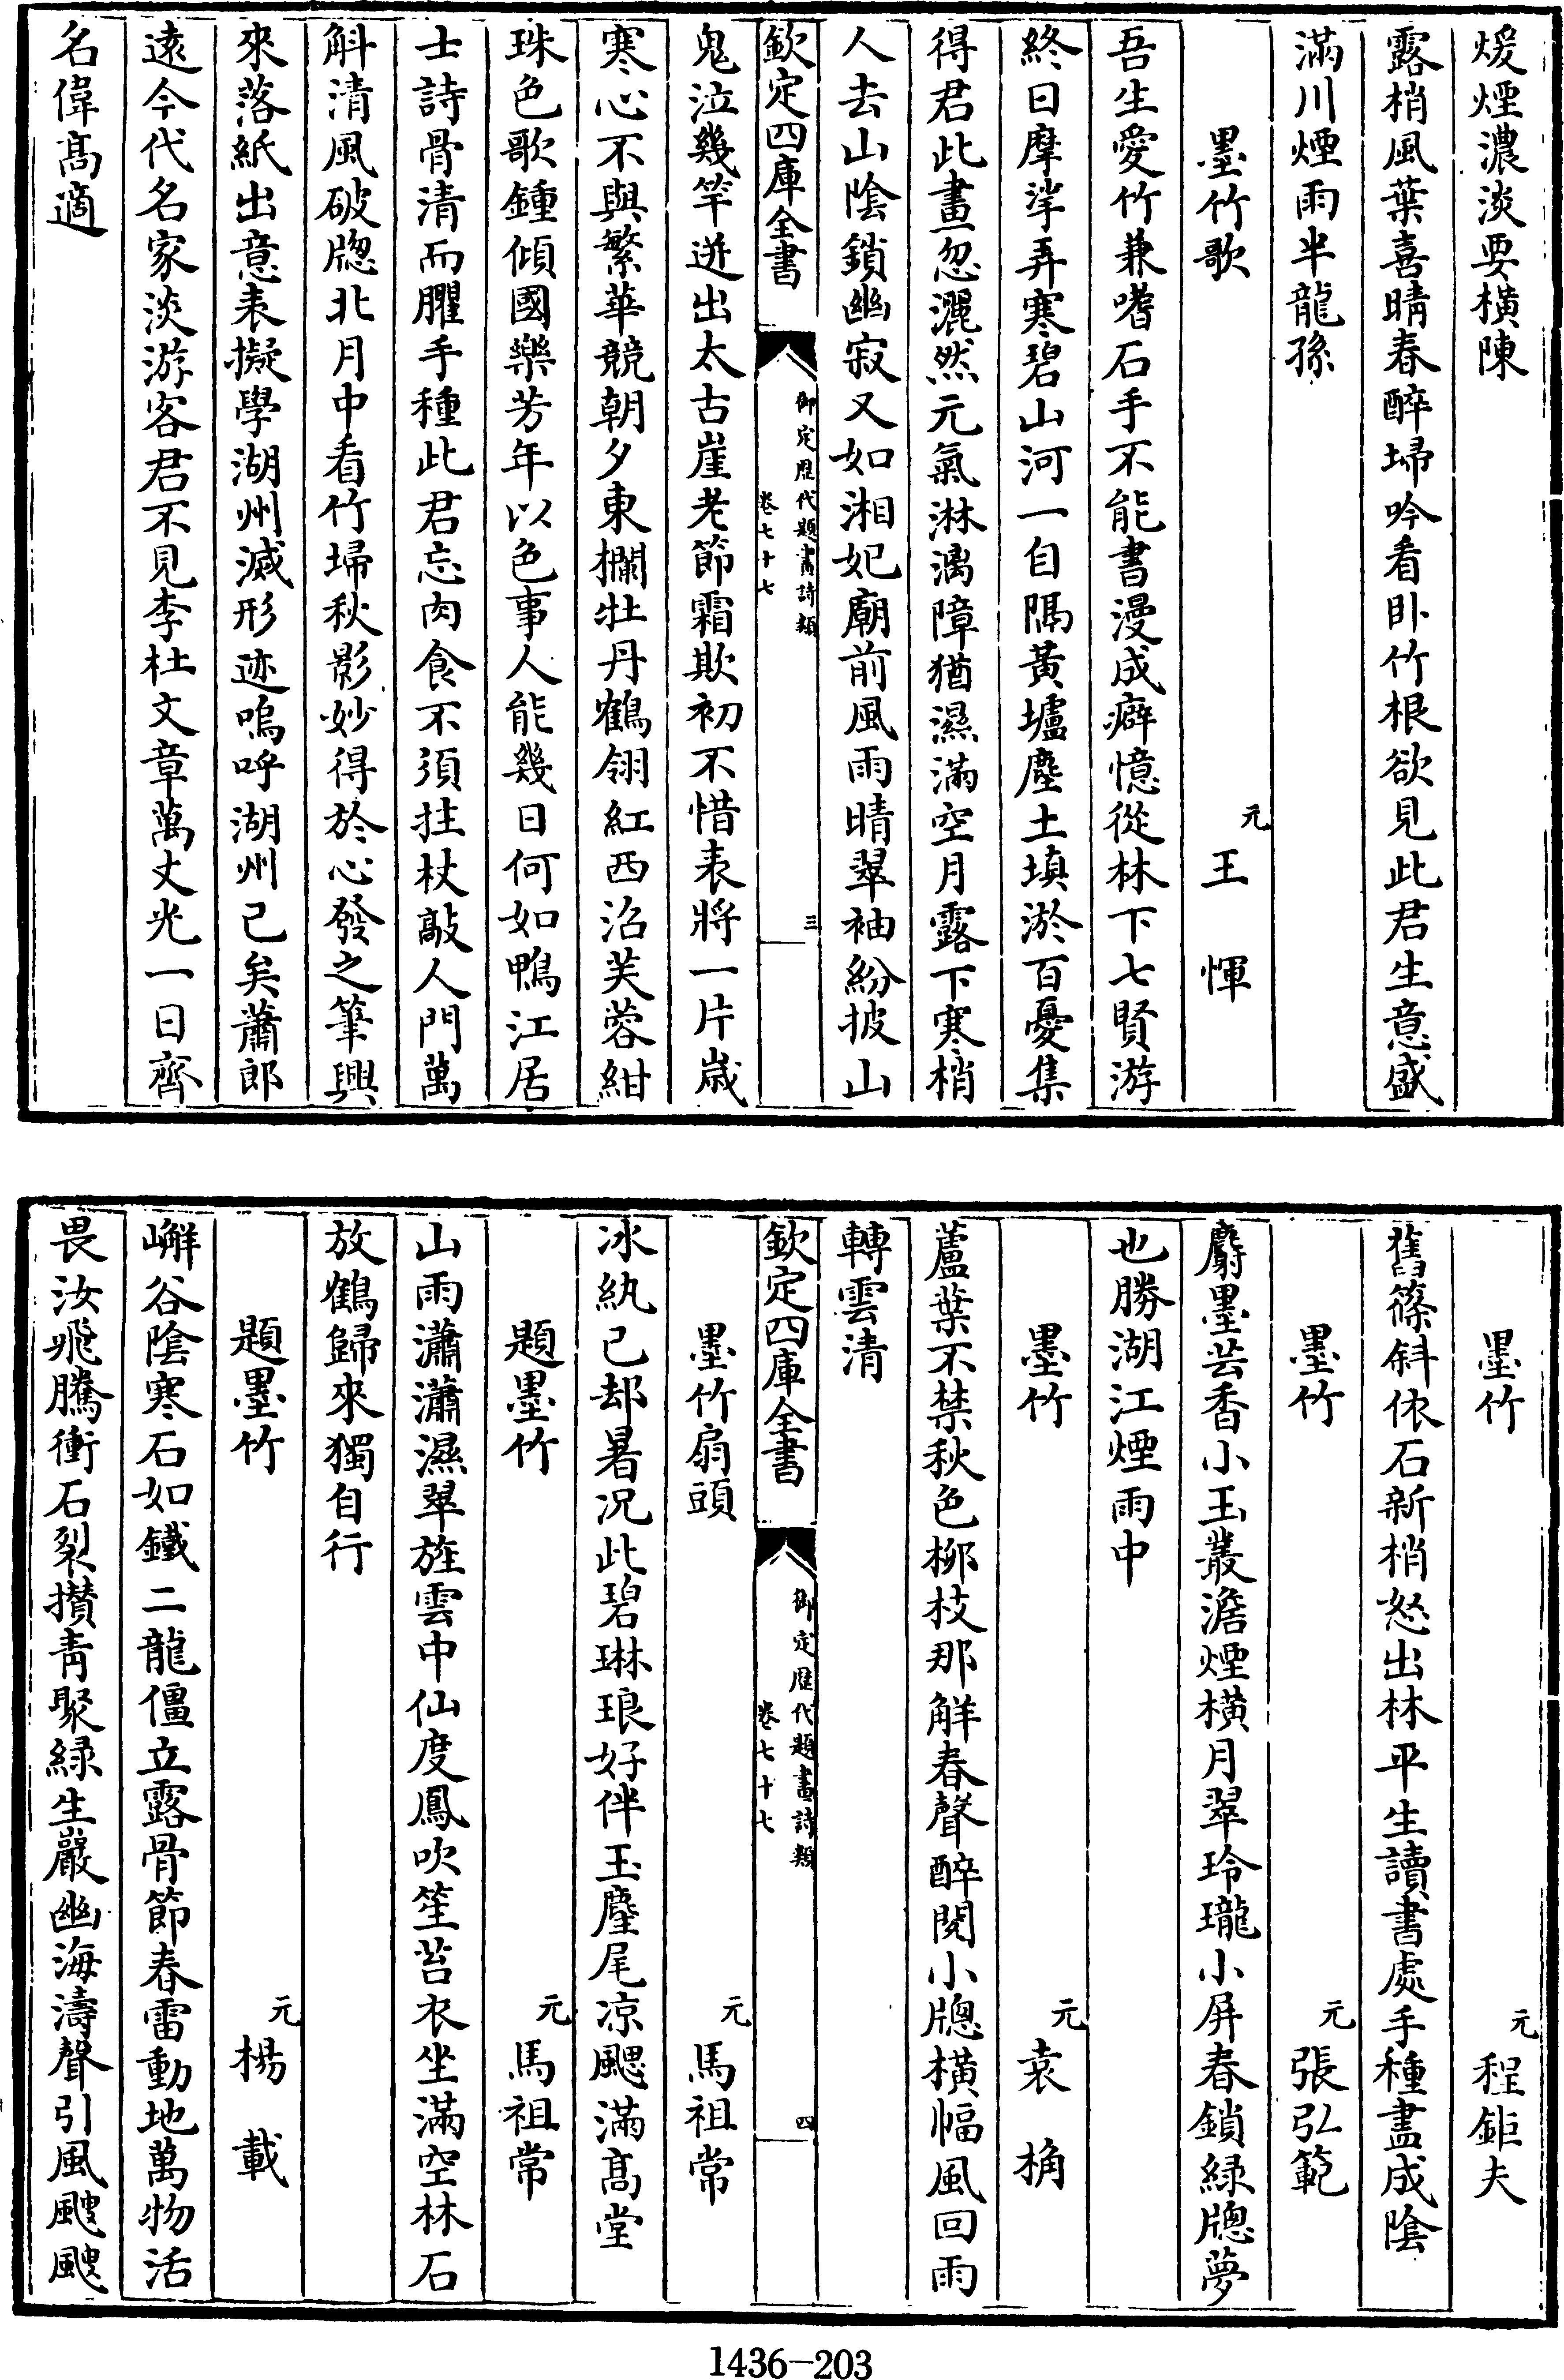 煖煙濃淡要橫陳
露梢風葉喜晴春醉埽吟看卧竹根欲見此君生意盛
滿川煙雨半龍孫
墨竹歌
元
王惲
吾生愛竹兼嗜石手不能書漫成癖憶從林下七賢游
終日摩挲弄寒碧山河一自隔黃壚塵土填淤百憂集
得君此畫忽灑然元氣淋漓障猶濕滿空月露下寒梢
人去山陰鎖幽寂又如湘妃廟前風雨晴翠袖紛披山
欽定四庫全書
御定歷代題畫詩類
卷七十七
三
鬼泣幾竿迸出太古崖老節霜欺初不惜表將一片歲
寒心不與繁華競朝夕東欄牡丹鶴翎紅西沼芙蓉紺
珠色歌鍾傾國樂芳年以色事人能幾日何如鴨江居
士詩骨清而臞手種此君忘肉食不須拄杖敲人門萬
斛清風破牕北月中看竹埽秋影妙得於心發之筆興
來落紙出意表擬學湖州滅形迹嗚呼湖州已矣蕭郎
遠今代名家淡游客君不見李杜文章萬丈光一日齊
名偉髙適
墨竹
元
程鉅夫
舊篠斜依石新梢怒出林平生讀書處手種盡成陰
墨竹
元
張弘範
麝墨芸香小玉叢澹煙橫月翠玲瓏小屏春鎖緑牕夢
也勝湖江煙雨中
墨竹
元
袁桷
蘆葉不禁秋色栁枝那解春聲醉閱小牕橫幅風回雨
轉雲清
欽定四庫全書
御定歷代題畫詩類
卷七十七
四
墨竹扇頭
元
馬祖常
冰紈已却暑况此碧琳琅好伴玉麈尾凉颸滿髙堂
題墨竹
元
馬祖常
山雨瀟瀟濕翠旌雲中仙度鳳吹笙苔衣坐滿空林石
放鶴歸來獨自行
題墨竹
元
楊載
嶰谷陰寒石如鐵二龍僵立露骨節春雷動地萬物活
畏汝飛騰衝石裂攢青聚緑生巖幽海濤聲引風颼颼
1436-203